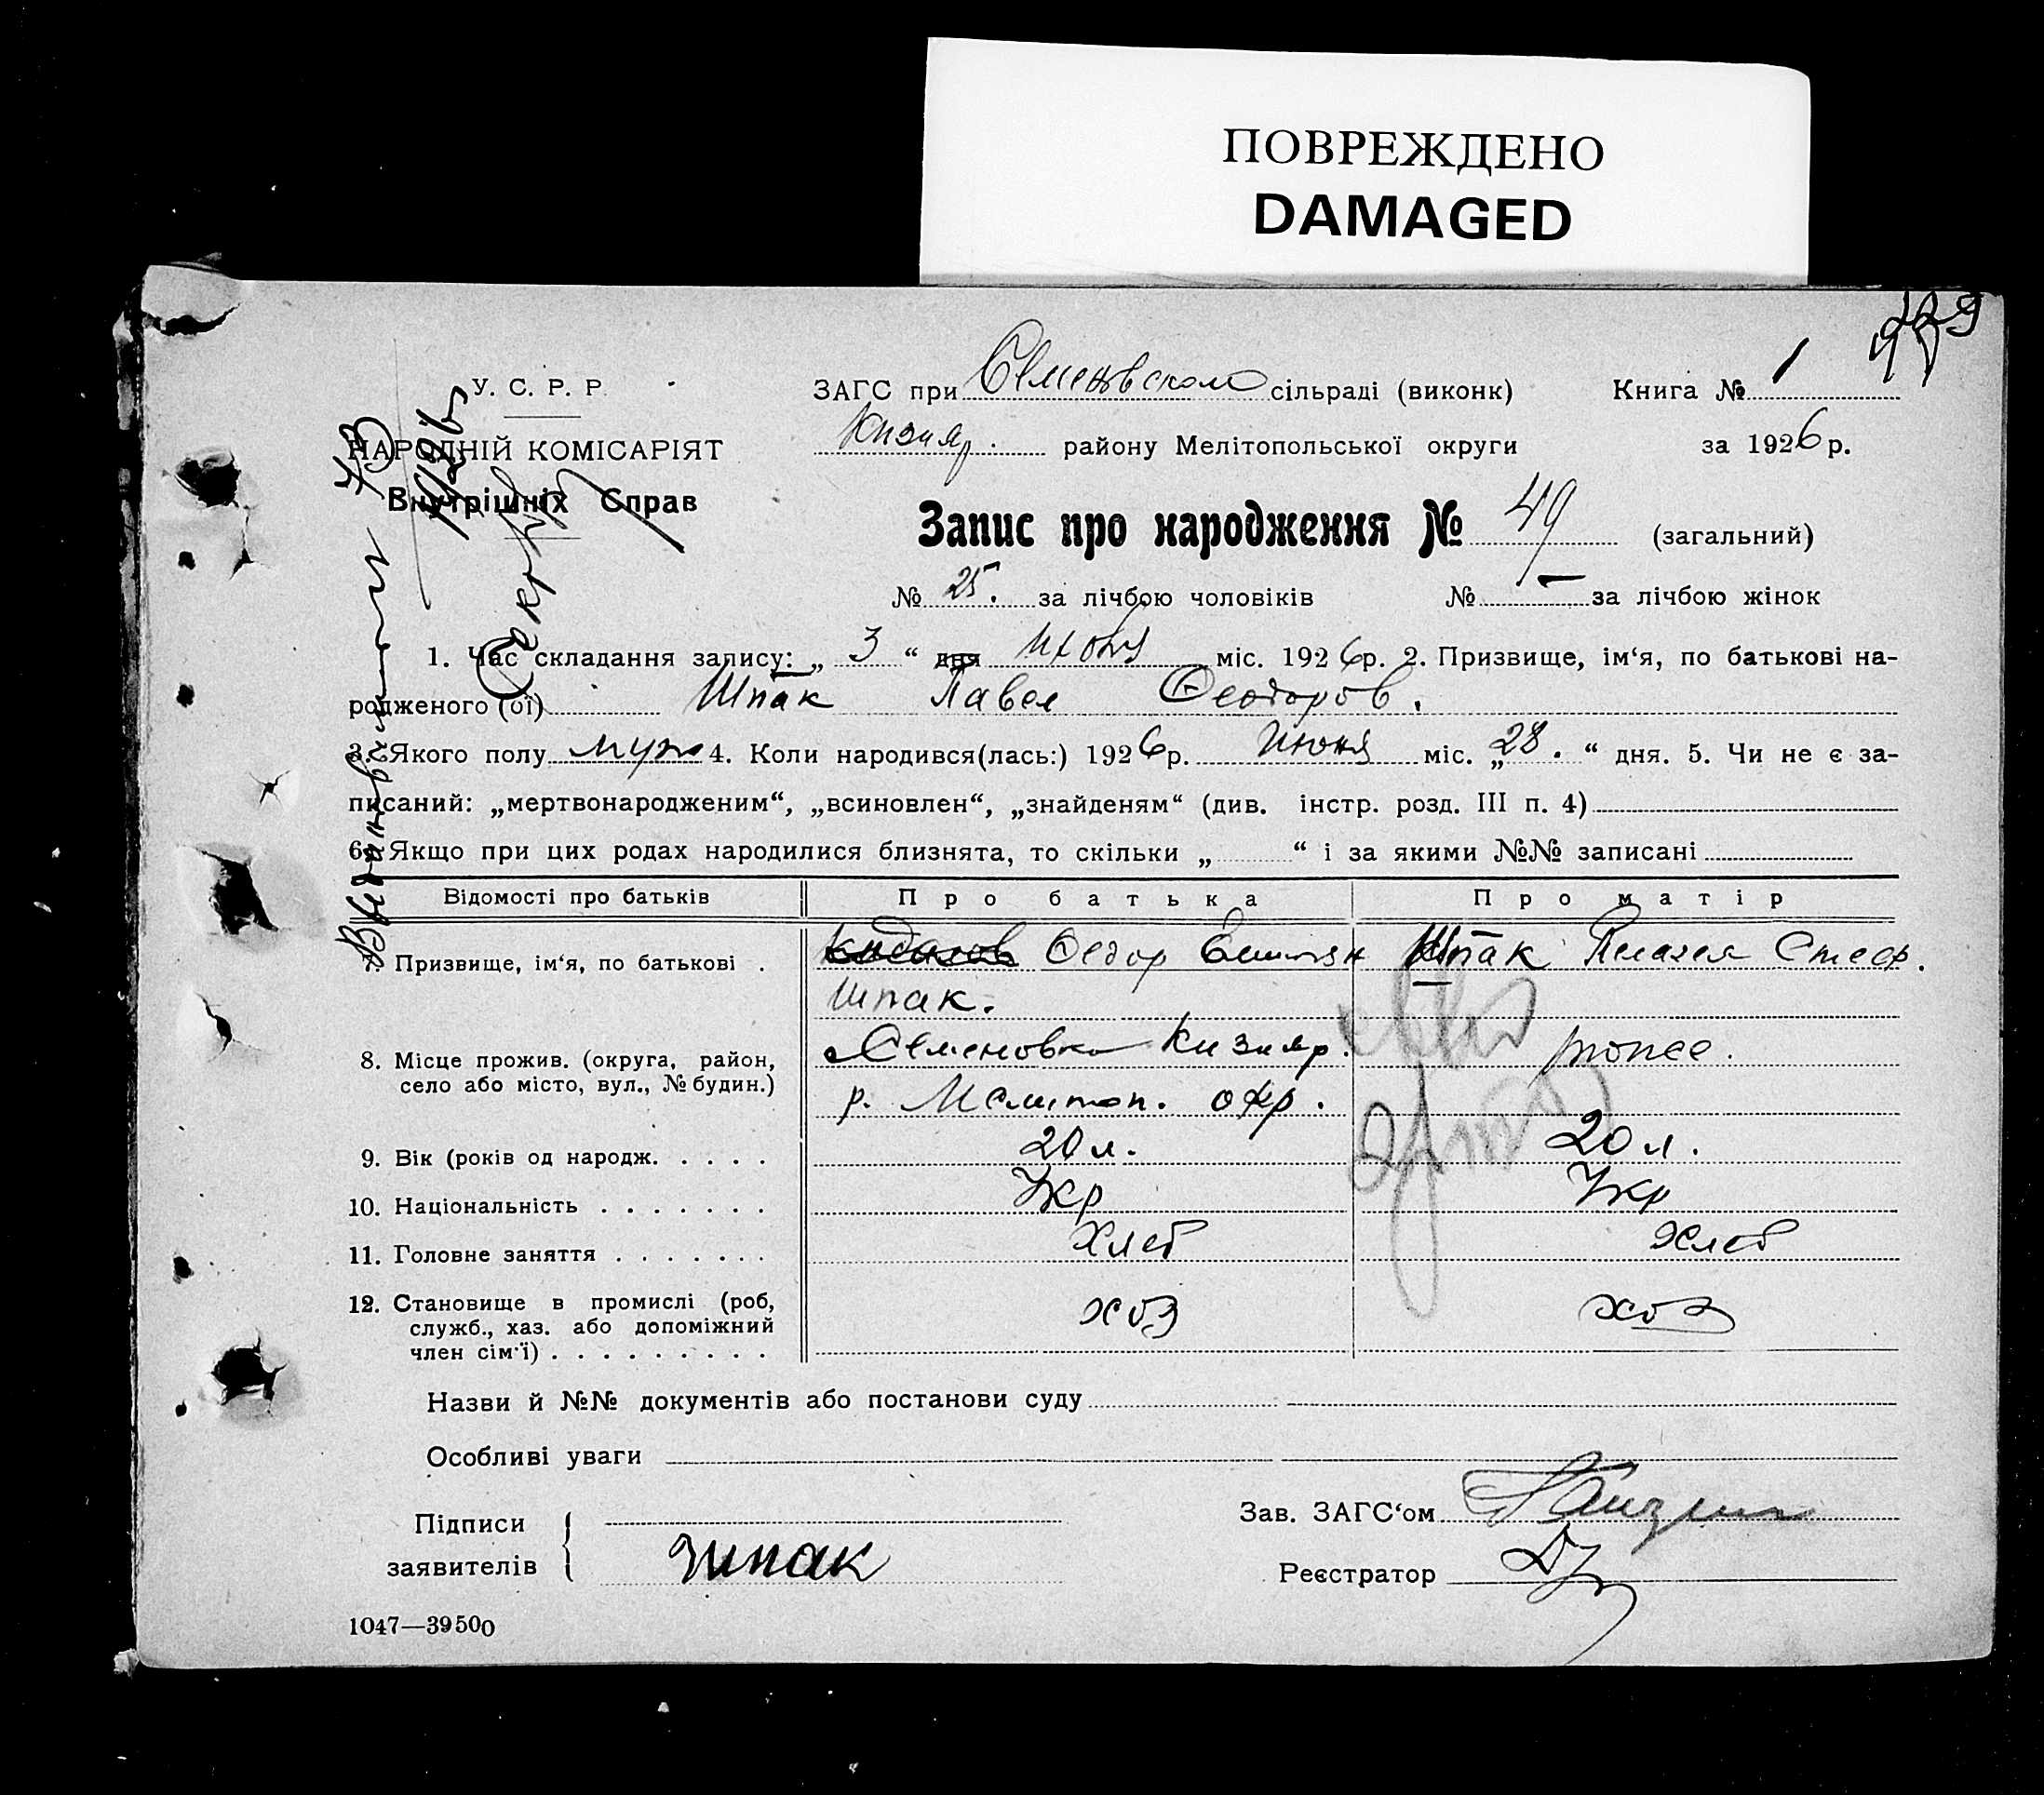 ПОВРЕЖДЕНО
DAMAGED
229
У. С. Р. Р.
НАРОДНІЙ КОМІСАРІЯТ
Внутрішніх Справ
ЗАГС при Семеновском сільраді (виконк) Книга № 1
Кизияр. району Мелітопольської округи за 1926 р.
Запис про народження № 49 (загальний)
№ 25. за лічбою чоловіків № — за лічбою жінок
1. Час складання запису: „ 3 “ дня міс. 1926 р. 2. Призвище, ім‘я, по батькові на-
родженого (ої) Шпак Павел Феодоров.
3. Якого полу муж 4. Коли народився(лась:) 1926 р. Июня міс. „ 28. “ дня. 5. Чи не є за-
писаний: „мертвонародженим“, „всиновлен“, „знайденям“ (див. інстр. розд. III п. 4)
6. Якщо при цих родах народилися близнята, то скільки „ “ і за якими №№ записані
Відомості про батьків Про батька Про матір
7. Призвище, ім‘я, по батькові . Федор Шпак Пелагея Стеф.
Шпак.
8. Місце прожив. (округа, район, Семеновка Кизияр. тоже.
село або місто, вул., № будин.) р. Мелитоп. окр.
9. Вік (років од народж. . . . . 20 л. 20 л.
10. Національність . . . . . . . Укр Укр
11. Головне заняття . . . . . . . Хлеб Хлеб
12. Становище в промислі (роб, хоз хоз
служб., хаз. або допоміжний
член сім‘ї) . . . . . . . . .
Назви й №№ документів або постанови суду
Особливі уваги
Підписи
заявителів
Шпак
Зав. ЗАГС‘ом
Реєстратор
1047—39500